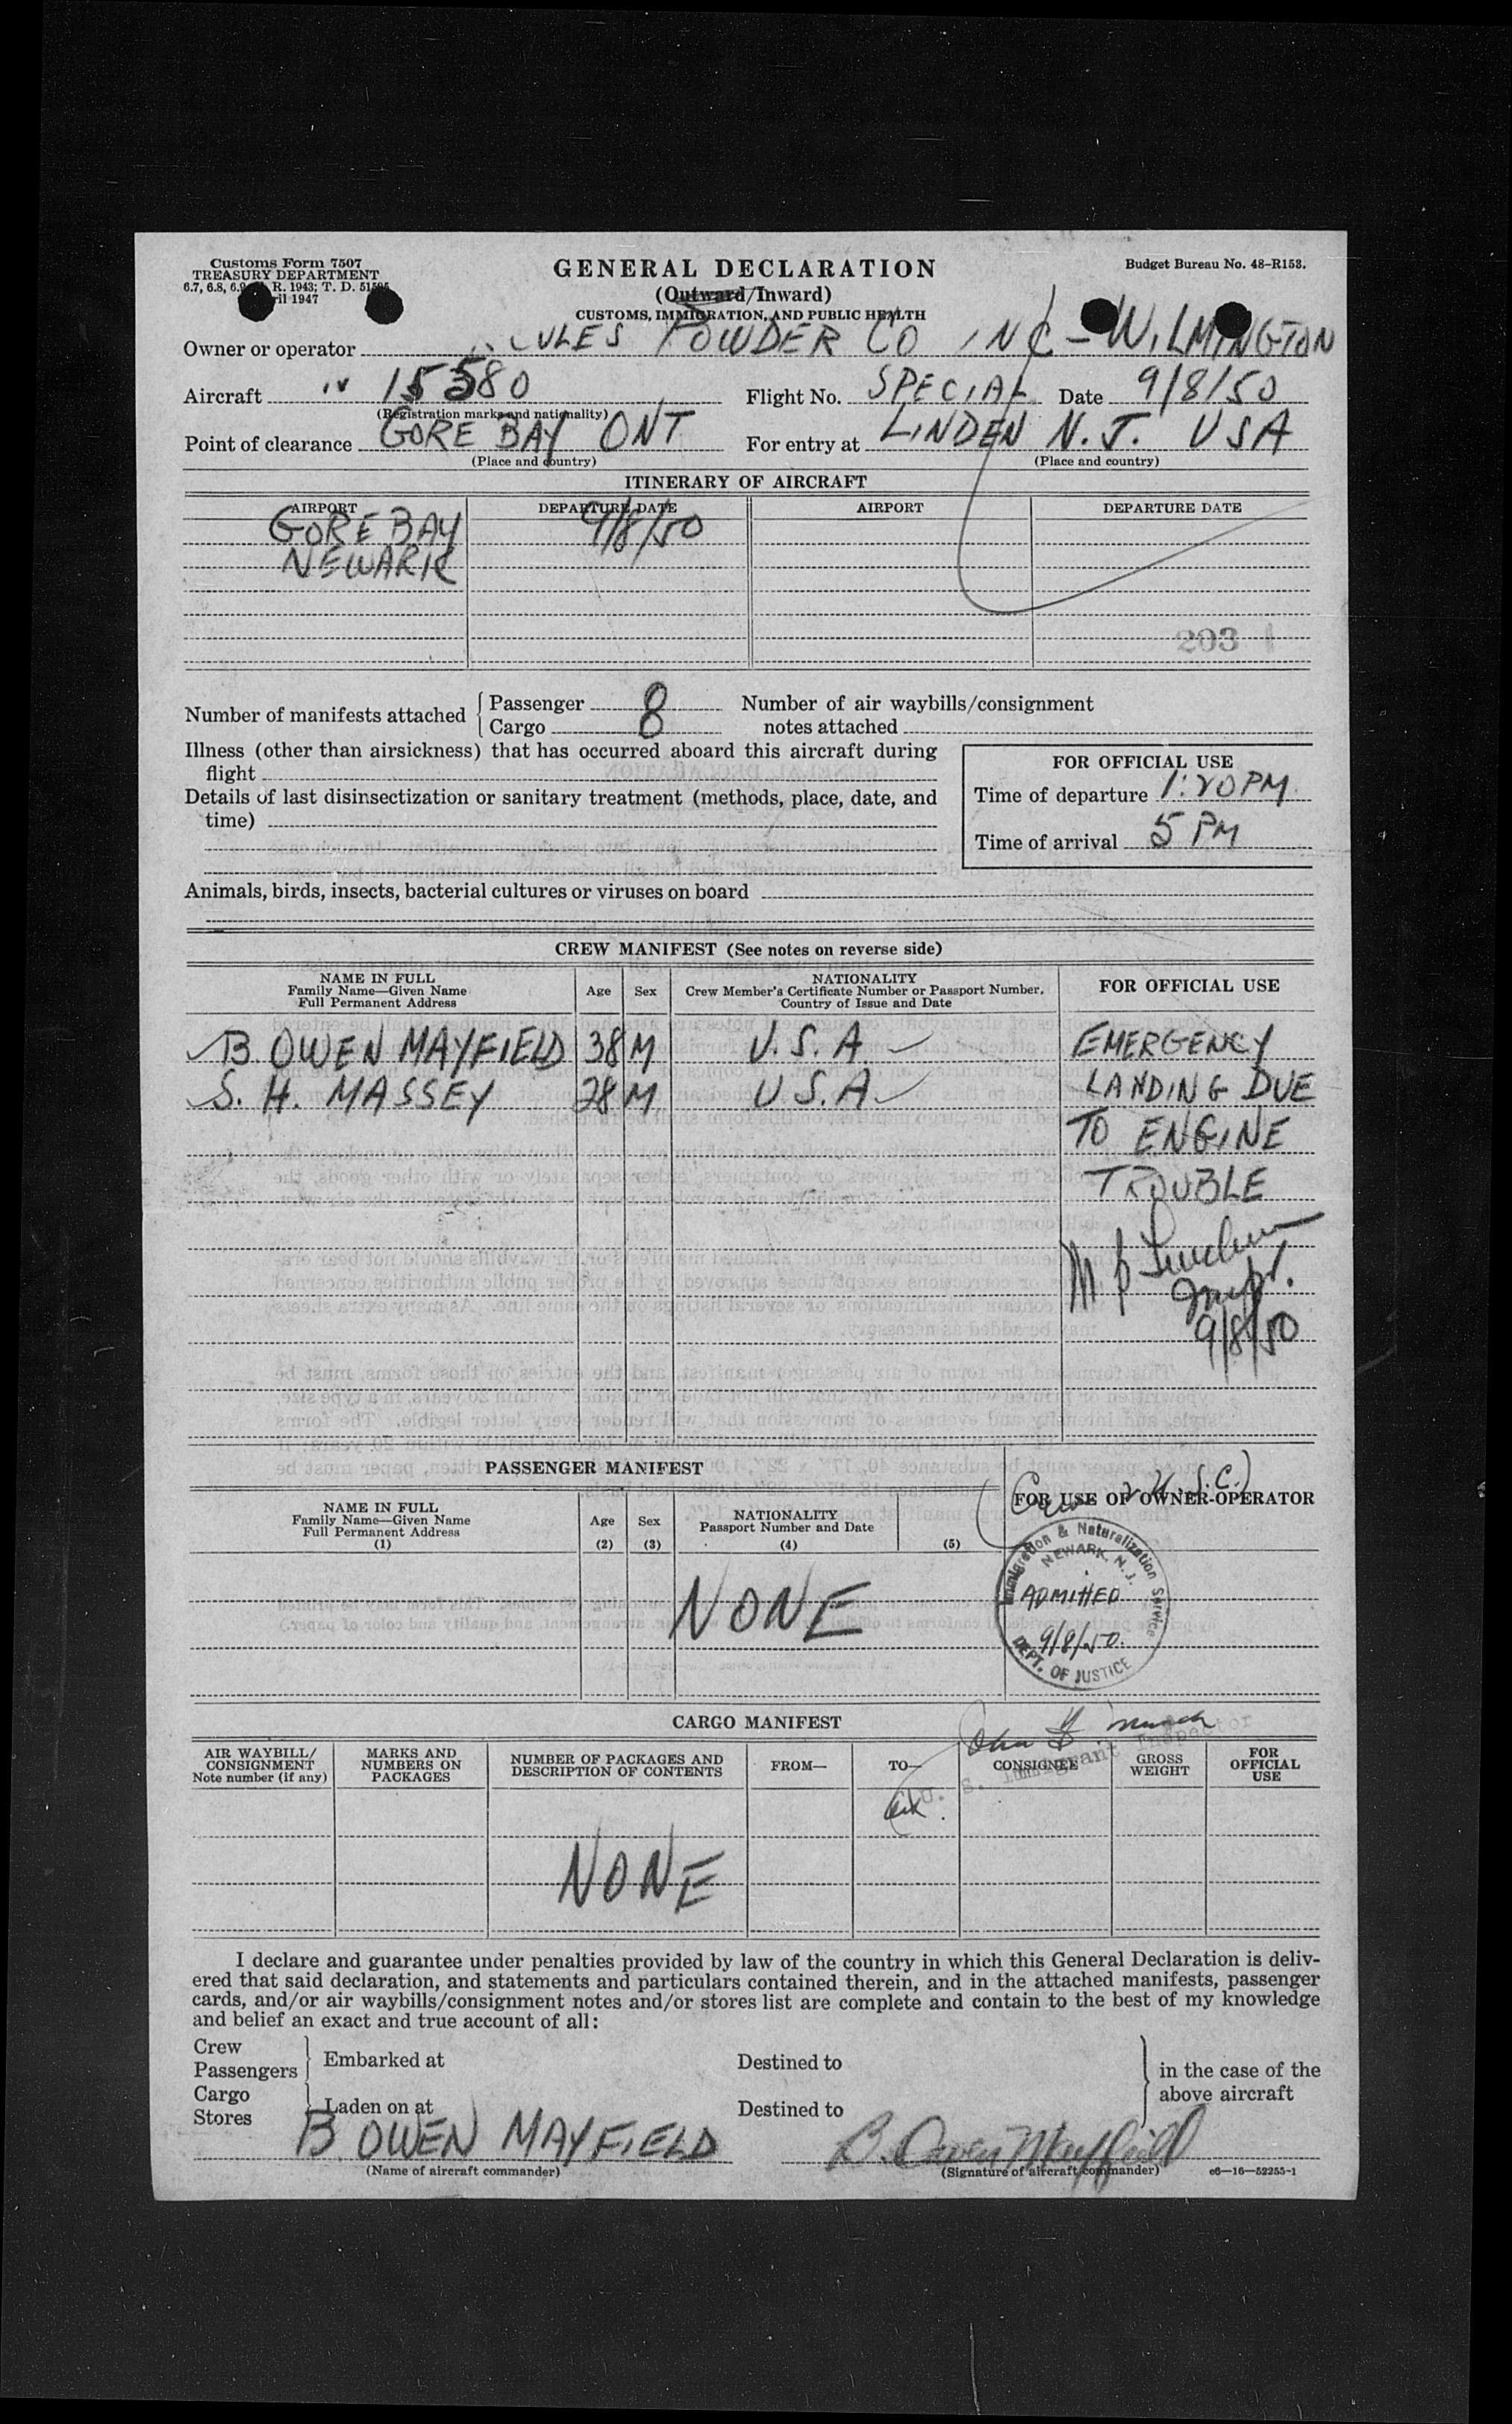 Customs Form 7507
TREASURY DEPARTMENT
6.7, 6.8, 6.9 R. 1943; T. D.
ril 1947
GENERAL DECLARATION
(Outward/Inward)
CUSTOMS, IMMIGRATION, AND PUBLIC HEALTH
Budget Bureau No. 48–R153.
Owner or operator CULES POWDER CO INC - WILMINGTON
Aircraft 15580 Flight No. SPECIAL Date 9/8/50
(Registration marks and nationality)
Point of clearance GORE BAY ONT For entry at LINDEN N.J. USA
(Place and country) (Place and country)
ITINERARY OF AIRCRAFT
AIRPORT DEPARTURE DATE AIRPORT DEPARTURE DATE
GORE BAY 9/8/50
NEWARK
203
Number of manifests attached { Passenger 8 Number of air waybills/consignment
Cargo notes attached
Illness (other than airsickness) that has occurred aboard this aircraft during
flight
Details of last disinsectization or sanitary treatment (methods, place, date, and
time)
FOR OFFICIAL USE
Time of departure 1:20 PM
Time of arrival 5 PM
Animals, birds, insects, bacterial cultures or viruses on board
CREW MANIFEST (See notes on reverse side)
NAME IN FULL
Family Name—Given Name
Full Permanent Address
Age Sex
NATIONALITY
Crew Member's Certificate Number or Passport Number,
Country of Issue and Date
FOR OFFICIAL USE
B. OWEN MAYFIELD 38 M U.S.A. EMERGENCY
S. H. MASSEY 28 M U.S.A LANDING DUE
TO ENGINE
TROUBLE
9/8/50
PASSENGER MANIFEST
(Crew 2 U.S.C.)
FOR USE OF OWNER-OPERATOR
NAME IN FULL
Family Name—Given Name
Full Permanent Address
(1)
Age
(2)
Sex
(3)
NATIONALITY
Passport Number and Date
(4) (5)
NONE
Immigration & Naturalization Service
NEWARK, N.J.
ADMITTED
9/8/50.
DEPT. OF JUSTICE
CARGO MANIFEST
John
U. S. Immigrant Inspector
AIR WAYBILL/
CONSIGNMENT
Note number (if any)
MARKS AND
NUMBERS ON
PACKAGES
NUMBER OF PACKAGES AND
DESCRIPTION OF CONTENTS
FROM— TO— CONSIGNEE
GROSS
WEIGHT
FOR
OFFICIAL
USE
NONE
I declare and guarantee under penalties provided by law of the country in which this General Declaration is deliv-
ered that said declaration, and statements and particulars contained therein, and in the attached manifests, passenger
cards, and/or air waybills/consignment notes and/or stores list are complete and contain to the best of my knowledge
and belief an exact and true account of all:
Crew
Passengers Embarked at Destined to in the case of the
Cargo above aircraft
Stores Laden on at Destined to
B. OWEN MAYFIELD B. Owen Mayfield
(Name of aircraft commander) (Signature of aircraft commander) c6—16—52255-1